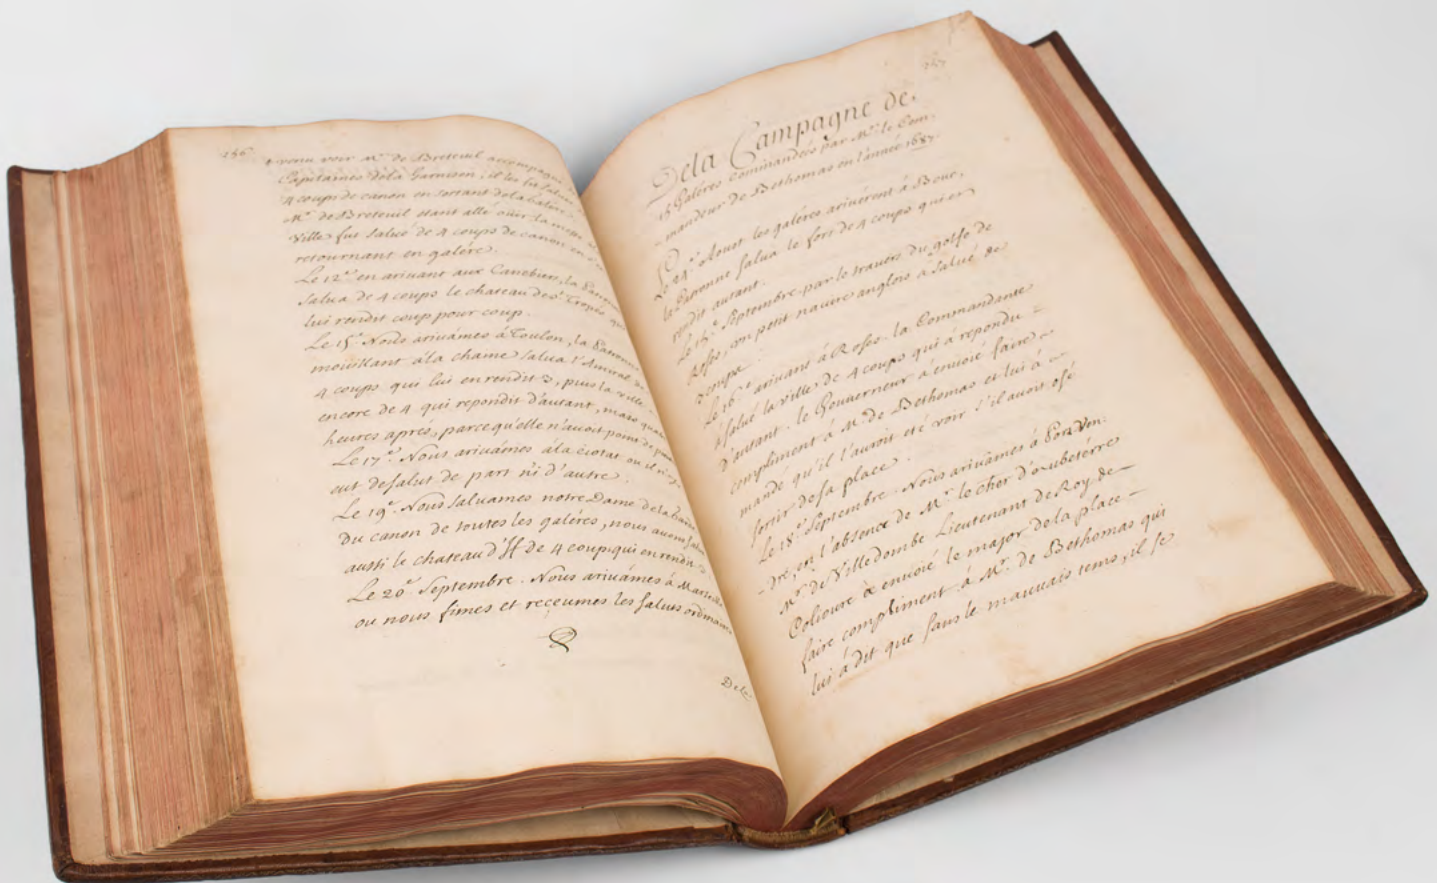 256
venu voir Mr. de Breteuil accompagné
Capitaines dela Garnison, il les fit saluer
4 coups de canon en sortant dela galere
Mr. de Breteuil étant allé ouir la messe
Ville fut salué de 4 coups de canon en
retournant en galére.
Le 12e. en arivant aux Canebiers, la Patronne
salua de 4 coups le chateau de St. Tropés
lui rendit coup pour coup.
Le 15e. Nous arivâmes à Toulon, la Patronne
moüillant àla chaine salua l'Amiral de
4 coups qui lui en rendit 3, puis la ville
encore de 4 qui repondit d'autant, mais
heures aprés, parce qu'elle n'avoit point de
Le 17e. Nous arivâmes àla ciotat ou il n'y
eut de salut de part ni d'autre.
Le 19e. Nous saluames notre Dame dela Garde
du canon de toutes les galéres, nous avons salué
aussi le chateau d'If de 4 coups qui en rendit
Le 20e. Septembre. Nous arivâmes à Marseille
ou nous fimes et receumes les saluts ordinaires
Dela
257
Dela Campagne de
15 Galéres Commandées par Mr. le Com-
mandeur de Bethomas en l'année 1687.
Le 24e. Aoust les galéres ariverent à Bouc,
la Patronne salua le fort de 4 coups qui en
rendit autant.
Le 15e. Septembre par le travers du golfe de
Roses, un petit navire anglois à salué de
3 coups.
Le 16e. arivans à Roses. la Commandante
à salué la ville de 4 coups qui à repondu =
d'autant. le Gouverneur a envoié faire
compliment à Mr. de Bethomas et lui à
mandé qu'il l'auroit eté voir s'il avoit osé
sortir de sa place.
Le 18e. Septembre. Nous arivâmes à Port Ven-
-dre, en l'absence de Mr. le cher d'Aubeterre
Mr. de Villedombe Lieutenant de Roy de
Colioure à envoié le major dela place
faire compliment à Mr. de Bethomas qui
lui à dit que sans le mauvais tems, il se